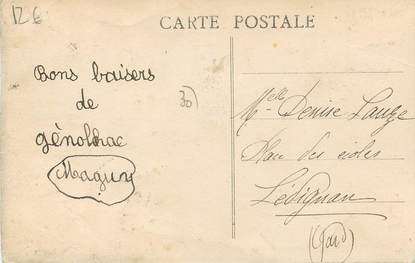 12€
CARTE POSTALE
Bons baisers
de
génolhac
Maguy
30
Melle Denise Lauze
Plan des écoles
Lédignan
(Gard)